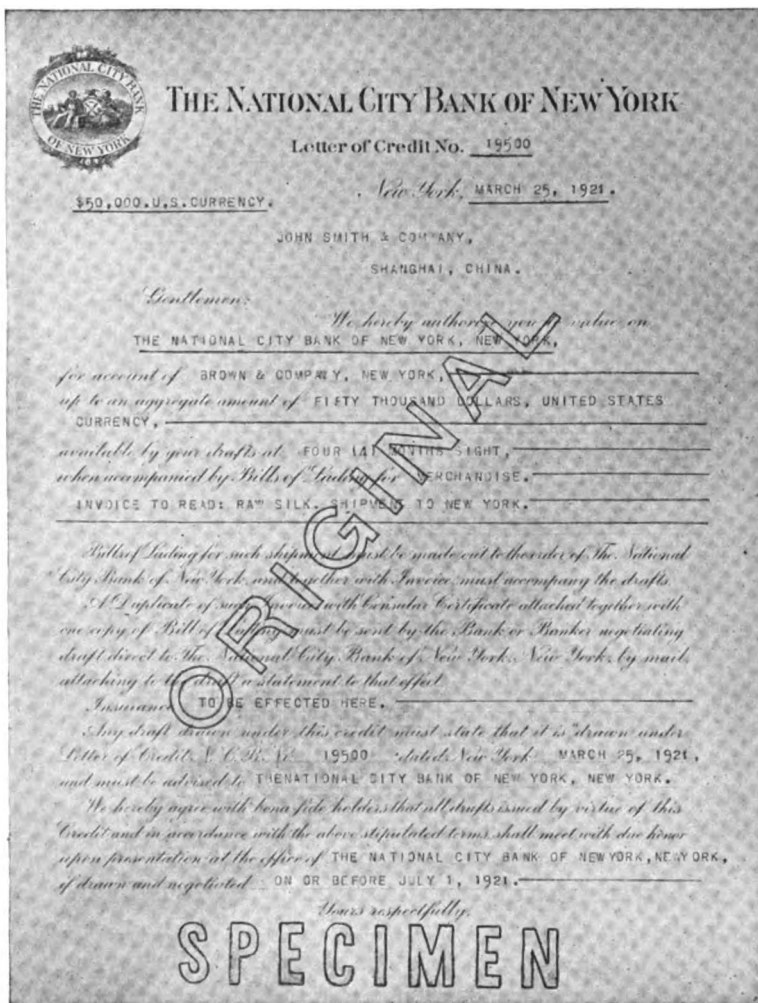 THE NATIONAL CITY BANK
OF NEW YORK
THE NATIONAL CITY BANK OF NEW YORK
Letter of Credit No. 19500
New York, MARCH 25, 1921.
$50,000.U.S.CURRENCY.
JOHN SMITH & COMPANY,
SHANGHAI, CHINA.
Gentlemen:
We hereby authorize you to value on
THE NATIONAL CITY BANK OF NEW YORK, NEW YORK,
for account of BROWN & COMPANY, NEW YORK,
up to an aggregate amount of FIFTY THOUSAND DOLLARS, UNITED STATES
CURRENCY,
available by your drafts at FOUR (4) MONTHS SIGHT,
when accompanied by Bills of Lading for MERCHANDISE.
INVOICE TO READ: RAW SILK. SHIPMENT TO NEW YORK.
Bills of Lading for such shipment must be made out to the order of The National
City Bank of New York, and together with Invoice, must accompany the drafts.
A Duplicate of such Invoice with Consular Certificate attached together with
one copy of Bill of Lading must be sent by the Bank or Banker negotiating
draft direct to The National City Bank of New York, New York, by mail,
attaching to the draft a statement to that effect.
Insurance TO BE EFFECTED HERE.
Any draft drawn under this credit must state that it is "drawn under
Letter of Credit N.C.B. No. 19500 dated New York MARCH 25, 1921,
and must be advised to THENATIONAL CITY BANK OF NEW YORK, NEW YORK.
We hereby agree with bona fide holders that all drafts issued by virtue of this
Credit and in accordance with the above stipulated terms shall meet with due honor
upon presentation at the office of THE NATIONAL CITY BANK OF NEWYORK,NEWYORK,
if drawn and negotiated ON OR BEFORE JULY 1, 1921.
Yours respectfully,
ORIGINAL
SPECIMEN